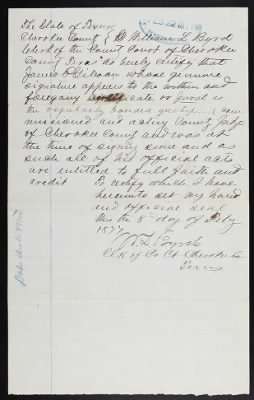 The State of Texas
Cherokee County } I William L Byrd
Clerk of the County Court of Cherokee
County Texas do hereby certify that
James P Gibson whose genuine
signature appears to the within and
foregoing certificate or Jurat is
the regularly
missioned and acting County Judge
of Cherokee County and was at
the time of signing same and as
such all of his official acts
are entitled to full faith and
credit To certify which I have
hereunto set my hand
and official seal
this the 8 day of Feby
187
W L Byrd
Clk of Co Ct Cherokee Co
Texas